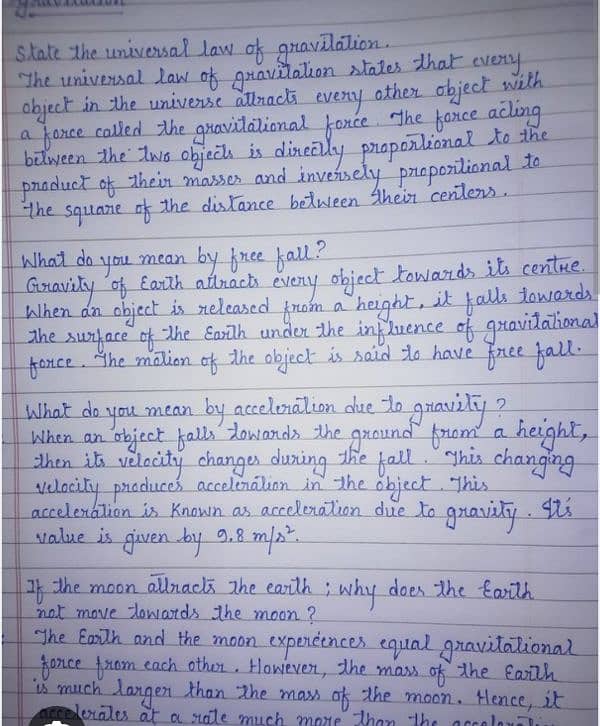 Gravitation
State the universal law of gravitation.
The universal law of gravitation states that every
object in the universe attracts every other object with
a force called the gravitational force. The force acting
between the two objects is directly proportional to the
product of their masses and inversely proportional to
the square of the distance between their centers.
What do you mean by free fall?
Gravity of Earth attracts every object towards its centre.
When an object is released from a height, it falls towards
the surface of the Earth under the influence of gravitational
force. The motion of the object is said to have free fall.
What do you mean by acceleration due to gravity?
When an object falls towards the ground from a height,
then its velocity changes during the fall. This changing
velocity produces acceleration in the object. This
acceleration is known as acceleration due to gravity. Its
value is given by 9.8 m/s².
If the moon attracts the earth ; why does the Earth
not move towards the moon ?
The Earth and the moon experiences equal gravitational
force from each other. However, the mass of the Earth
is much larger than the mass of the moon. Hence, it
accelerates at a rate much more than the